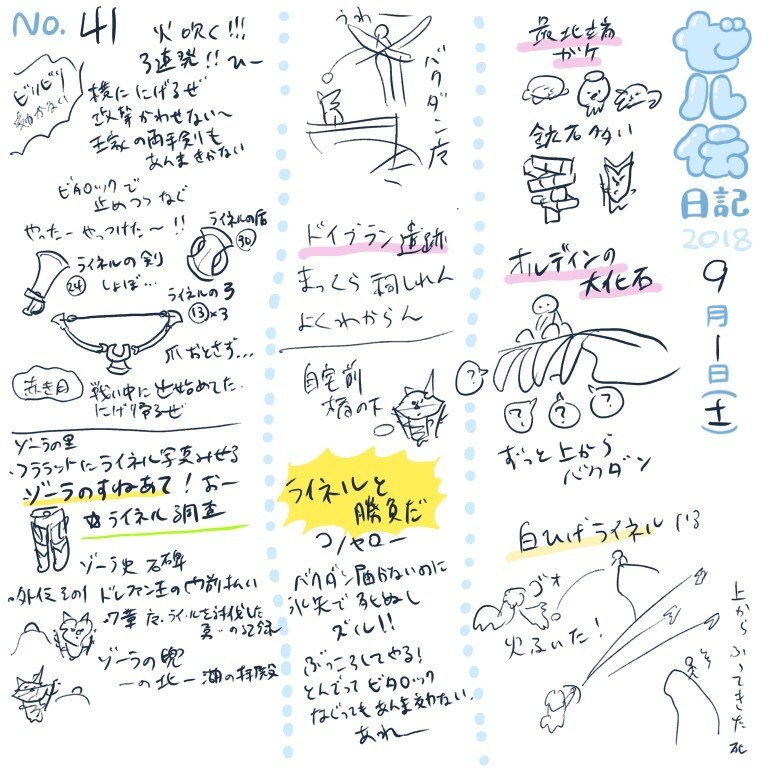 ゼル伝
日記
2018
9月1日(土)
最北端
ガケ
鉱石多い
オルディンの
大化石
?
?
?
?
ずっと上から
バクダン
白ひげライネル
ゴォ
火ふいた!
上からふってきた 死
うわー
バクダン
ドイブラン遺跡
まっくら 祠しれん
よくわからん
自宅前
橋の下
ライネルと
勝負だ
コノヤロー
バクダン届かないのに
氷矢で死ぬし
ズル!!
ぶっころしてやる!
とんでって ビタロック
なぐってもあんま効かない
あれー
No. 41
火吹く!!!
弓連発!! ひー
ビリビリ
横ににげるぜ
攻撃かわせない〜
王家の両手剣も
あんまきかない
ビタロックで
止めつつなぐ
やったー やっつけた〜!!
ライネルの盾
30
ライネルの剣
24
しょぼ…
ライネルの弓
13×3
爪おとさず…
赤き月
戦い中に出始めてた
にげ帰るぜ
ゾーラの里
・フララットにライネル写真みせる
ゾーラのすねあて! おー
☆ライネル調査
ゾーラ史 石碑
・外伝その1 ドレファン王の門前払い
・7章
ライネルを討伐した
真…の記録
ゾーラの兜
ーの北ー湖の拝殿